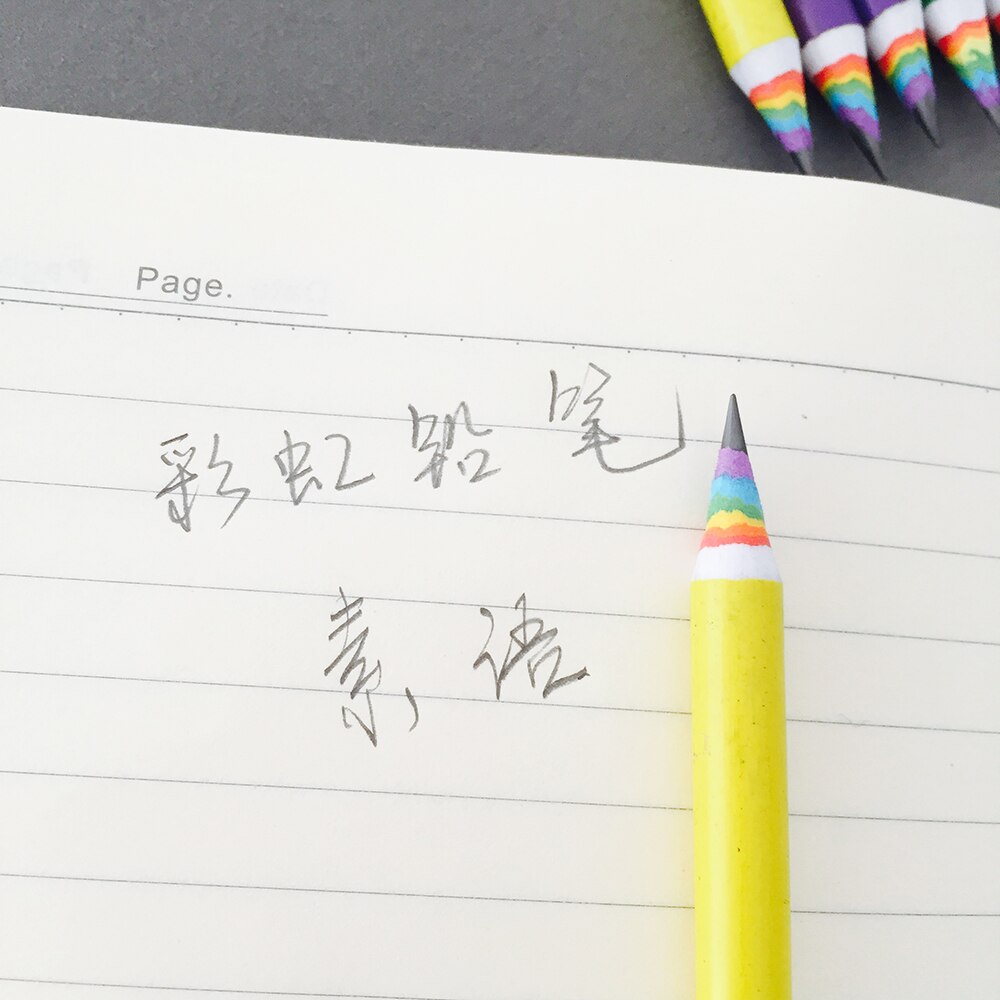 Page.
彩虹铅笔
素语